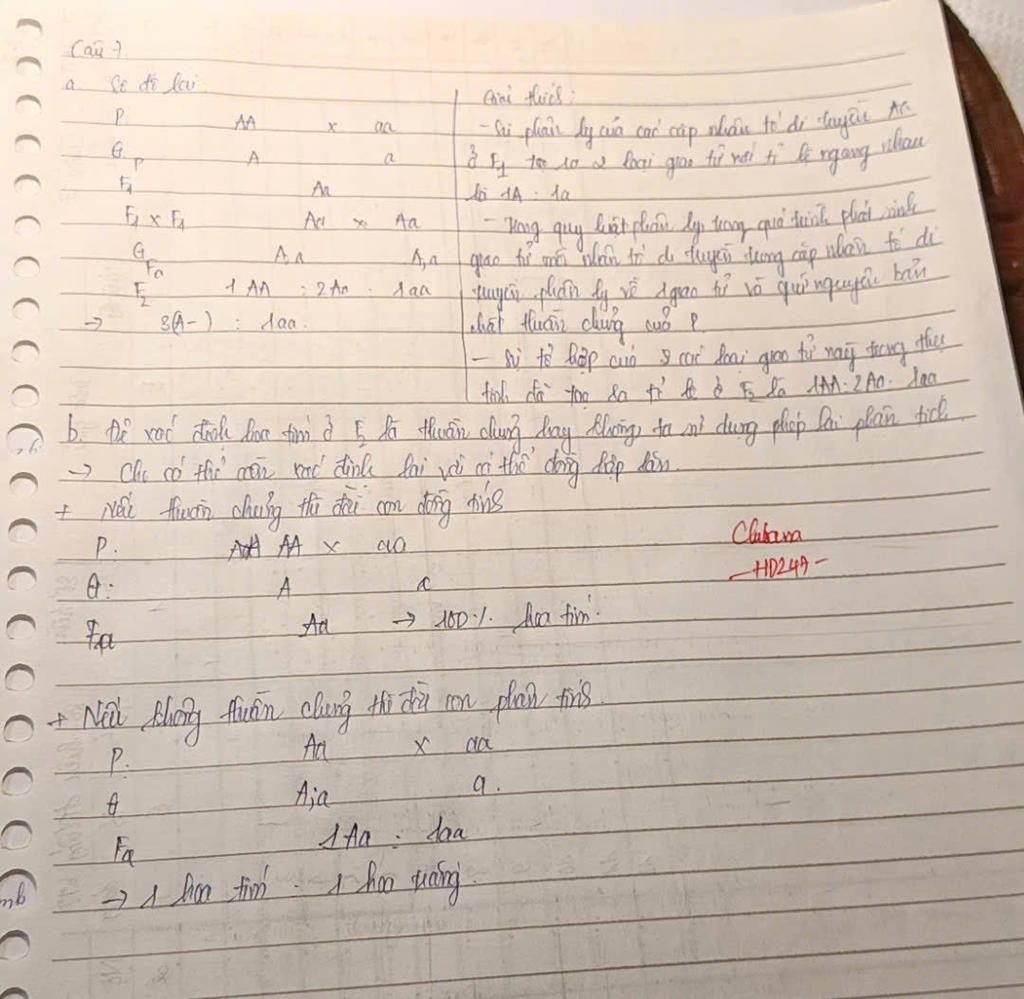 Câu 7
a. Sơ đồ lai
P AA x aa
G_P A a
F1 Aa
F1 x F1 Aa x Aa
G_Fa A,a A,a
F2 1AA : 2Aa : 1aa
→ 3(A-) : 1aa.
Giải thích:
- Sự phân ly của các cặp nhân tố di truyền Aa
ở F1 tạo ra 2 loại giao tử với tỉ lệ ngang nhau
là 1A : 1a
- Trong quy luật phân ly trong quá trình phát sinh
giao tử mỗi nhân tố di truyền trong cặp nhân tố di
truyền phân ly về 1 giao tử và giữ nguyên bản
chất thuần chủng của P.
- Sự tổ hợp của 2 các loại giao tử này trong thụ
tinh đã tạo ra tỉ lệ ở F2 là 1AA : 2Aa : 1aa
b. Để xác định hoa tím ở F2 là thuần chủng hay không, ta sử dụng phép lai phân tích
→ Cho cá thể cần xác định lai với cá thể đồng hợp lặn.
+ Nếu thuần chủng thì đời con đồng tính
P. AA x aa
G: A a
Fa Aa → 100% hoa tím.
Clubana
-HD249-
+ Nếu không thuần chủng thì đời con phân tính.
P. Aa x aa
G A;a a.
Fa 1Aa : 1aa
→ 1 hoa tím : 1 hoa trắng.